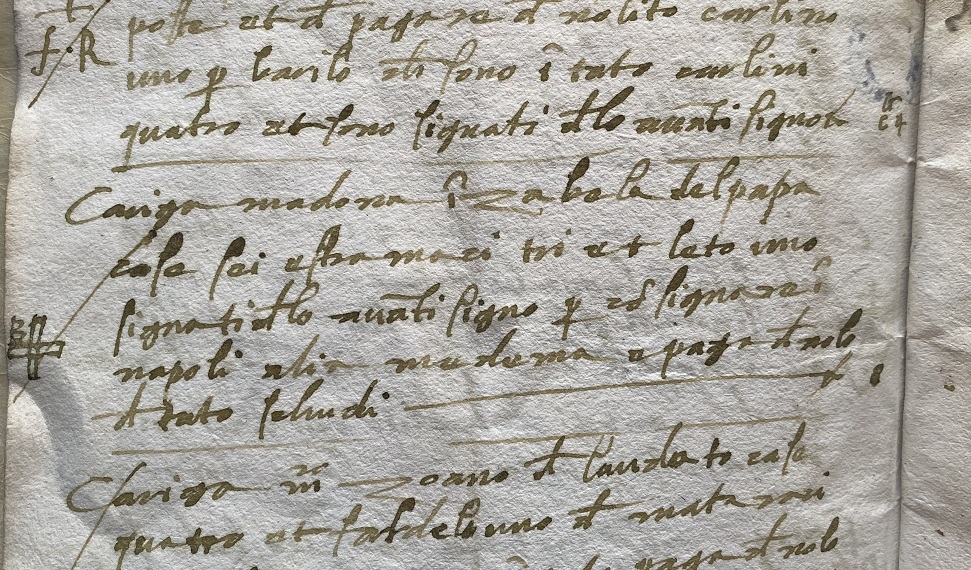 poste et d pagare d nolito carlino
uno p barilo ch sono i tato carlini
quatro et sono signati dlo avati signo
Cariga madona izabela del papa
case sei estramaci tri et leto uno
signati dlo avati signo p signare i
napoli alia medema e paga d nolo
d tato schudi 1
Cariga m zoano d laudato case
quatro et faldelo uno d mataraci
paga d nolo